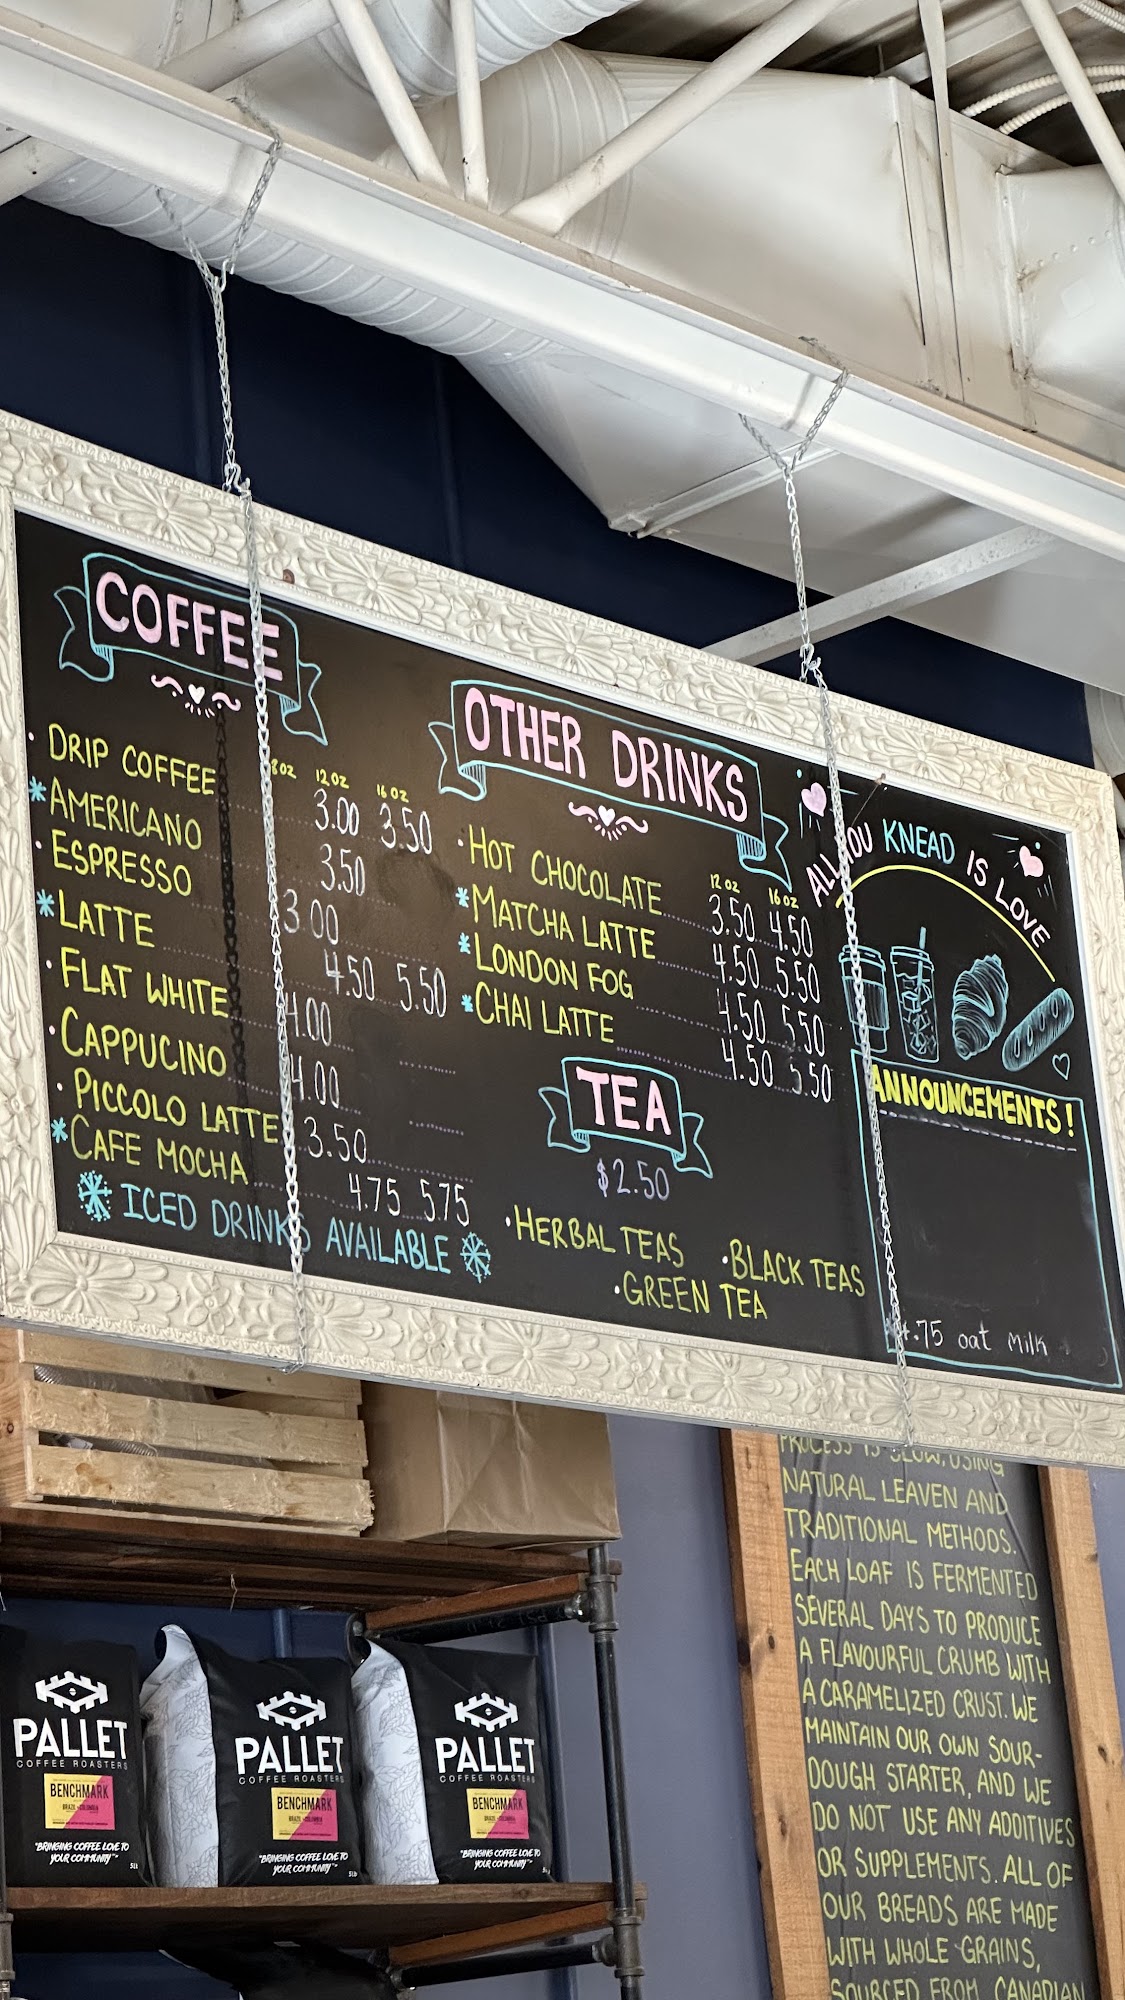 COFFEE
8 OZ 12 OZ 16 OZ
· DRIP COFFEE 3.00 3.50
* AMERICANO 3.50
· ESPRESSO 3.00
* LATTE 4.50 5.50
· FLAT WHITE 4.00
· CAPPUCINO 4.00
· PICCOLO LATTE 3.50
* CAFE MOCHA 4.75 5.75
ICED DRINKS AVAILABLE
OTHER DRINKS
12 OZ 16 OZ
· HOT CHOCOLATE 3.50 4.50
* MATCHA LATTE 4.50 5.50
* LONDON FOG 4.50 5.50
* CHAI LATTE 4.50 5.50
TEA
$2.50
· HERBAL TEAS
· BLACK TEAS
· GREEN TEA
ALL YOU KNEAD IS LOVE
ANNOUNCEMENTS!
.75 oat milk
PROCESS IS SLOW, USING
NATURAL LEAVEN AND
TRADITIONAL METHODS.
EACH LOAF IS FERMENTED
SEVERAL DAYS TO PRODUCE
A FLAVOURFUL CRUMB WITH
A CARAMELIZED CRUST. WE
MAINTAIN OUR OWN SOUR-
DOUGH STARTER, AND WE
DO NOT USE ANY ADDITIVES
OR SUPPLEMENTS. ALL OF
OUR BREADS ARE MADE
WITH WHOLE GRAINS,
SOURCED FROM CANADIAN
PALLET
COFFEE ROASTERS
BENCHMARK
BRAZIL + COLOMBIA
"BRINGING COFFEE LOVE TO
YOUR COMMUNITY"
5Lb
PALLET
COFFEE ROASTERS
BENCHMARK
BRAZIL + COLOMBIA
"BRINGING COFFEE LOVE TO
YOUR COMMUNITY"
5Lb
PALLET
COFFEE ROASTERS
BENCHMARK
BRAZIL + COLOMBIA
"BRINGING COFFEE LOVE TO
YOUR COMMUNITY"
5Lb